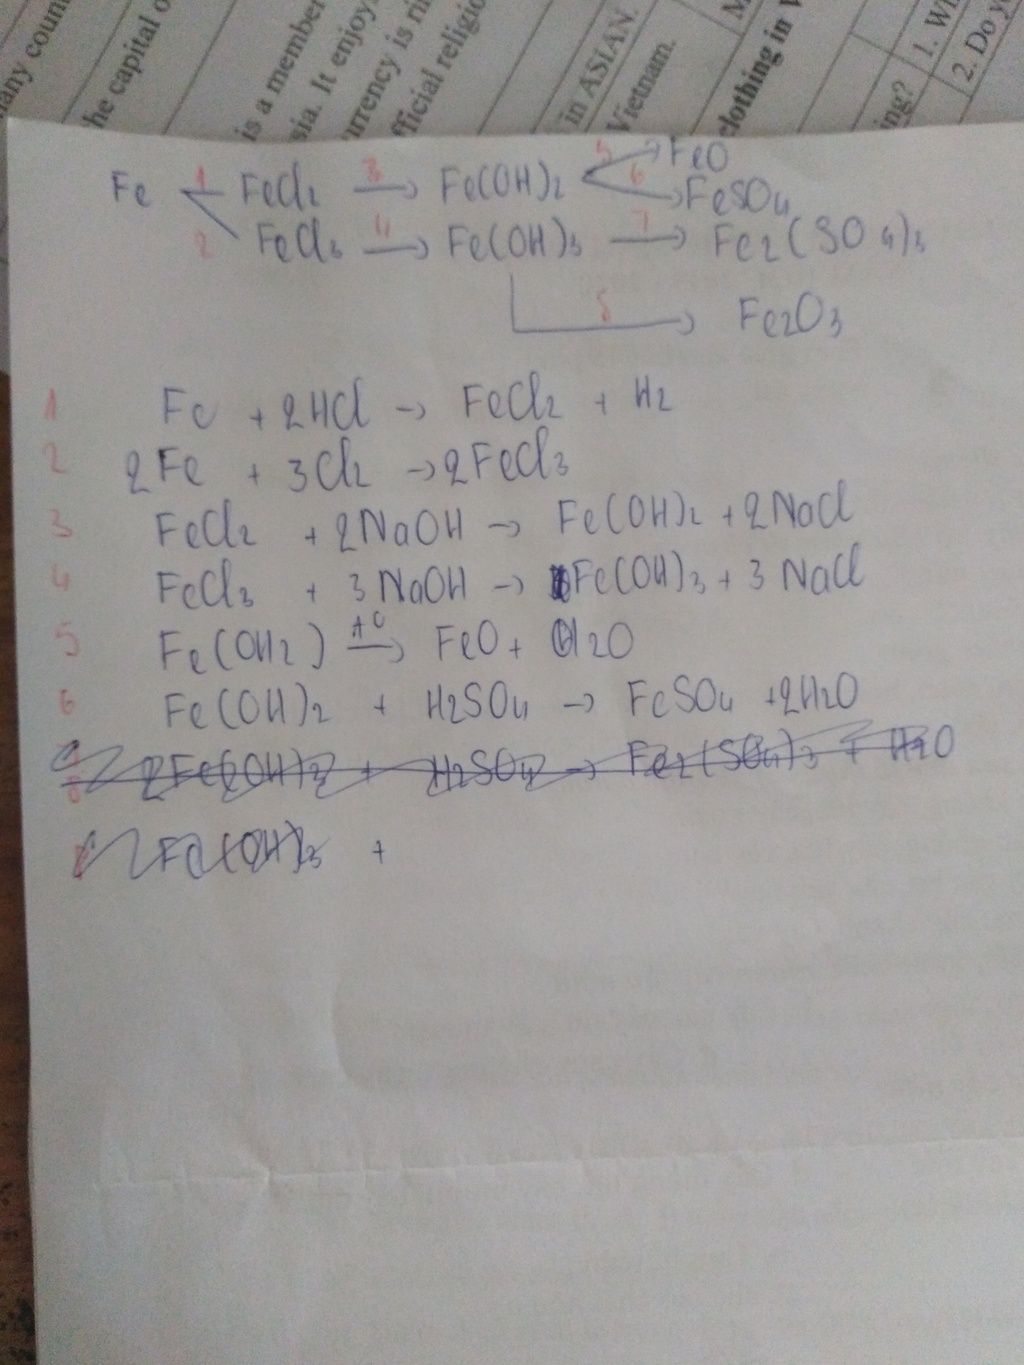 any coun
he capital o
is a member
sia. It enjoy
urrency is ri
fficial religio
in ASIAN.
Vietnam.
clothing in V
ing?
1. Wh
2. Do yo
Fe 1 FeCl2 3 → Fe(OH)2 5 → FeO
6 → FeSO4
2 FeCl3 4 → Fe(OH)3 7 → Fe2(SO4)3
8 → Fe2O3
1 Fe + 2HCl → FeCl2 + H2
2 2Fe + 3Cl2 → 2FeCl3
3 FeCl2 + 2NaOH → Fe(OH)2 + 2NaCl
4 FeCl3 + 3NaOH → Fe(OH)3 + 3NaCl
5 Fe(OH2) t° → FeO + H2O
6 Fe(OH)2 + H2SO4 → FeSO4 + 2H2O
2Fe(OH)3 + H2SO4 → Fe2(SO4)3 + H2O
Fe(OH)3 +